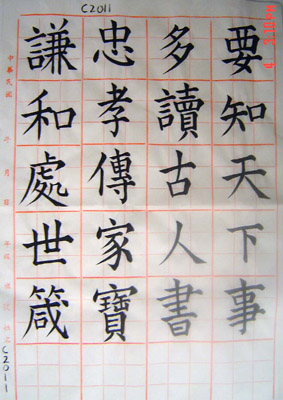 C2011
要知天下事
多讀古人書
忠孝傳家寶
謙和處世箴
中華民國
年 月 日
C2011